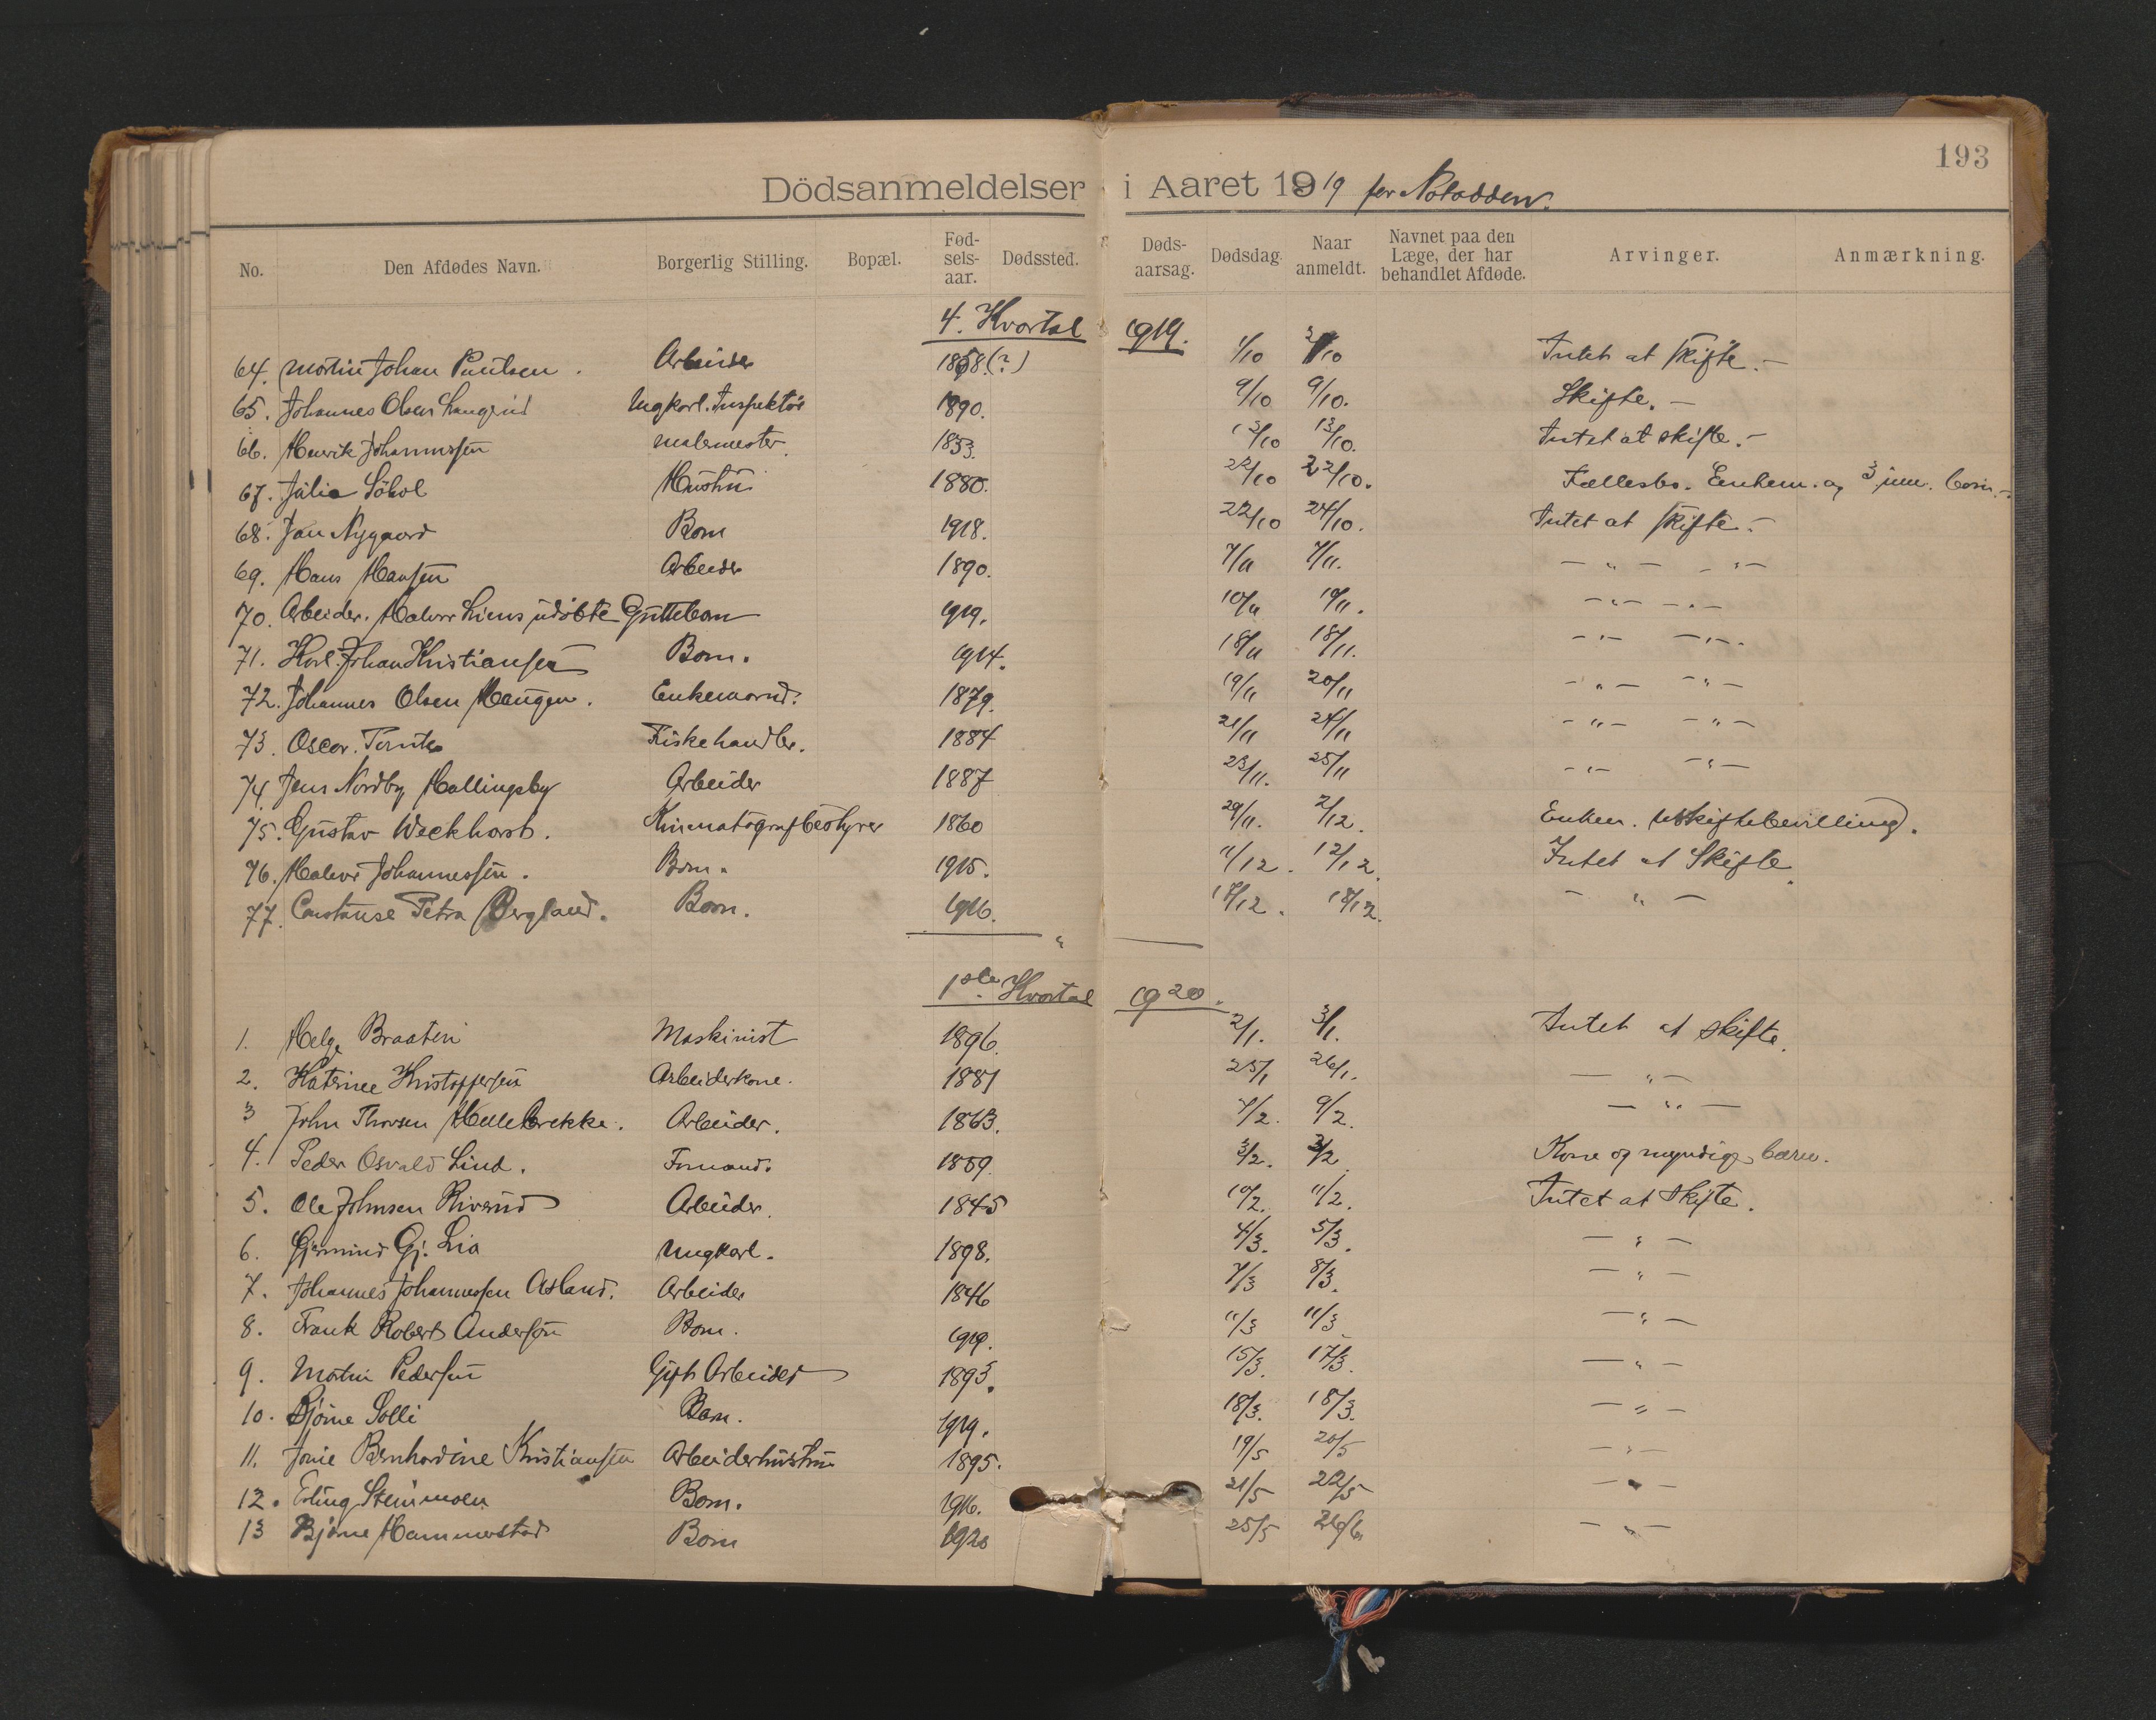 193
Dödsanmeldelser i Aaret 1919 for Notodden.
No. Den Afdødes Navn. Borgerlig Stilling. Bopæl. Fød-sels-aar. Dødssted. Døds-aarsag. Dødsdag. Naar anmeldt. Navnet paa den Læge, der har behandlet Afdøde. Arvinger. Anmærkning.
4. Kvartal 1919.
64. Martin Johan Paulsen. Arbeider 1858.(?) 1/10 2/10 Intet at skifte. –
65. Johannes Olsen Ungkarl. Inspektör 1890. 9/10 9/10. Skifte. –
66. Henrik Johannessen malermester. 1853. 13/10 13/10. Intet at skifte. –
67. Julia Sökol Hustru 1880. 22/10 22/10. Fællesbo. Enkem. og 3 um. barn. –
68. Jan Nygaard Barn 1918. 22/10 24/10. Intet at skifte. –
69. Hans Hansen Arbeider 1890. 7/11 7/11. – " – – " –
70. Arbeider. Halvor Liens udöbte Guttebarn 1919. 10/11 10/11. – " – – " –
71. Karl Johan Kristiansen Barn. 1914. 18/11 18/11. – " – – " –
72. Johannes Olsen Haugen. Enkemand. 1879. 19/11 20/11 – " – – " –
73. Oscar. Fiskehandler. 1884 21/11 24/11 – " – – " –
74. Jens Nordby Hallingsby Arbeider 1887 23/11. 25/11 – " – – " –
75. Gustav Weckhorst. Kinematografbestyrer 1860 29/11. 2/12. Enken. uskiftebevilling.
76. Halvor Johannessen. Barn. 1915. 11/12. 12/12. Intet at Skifte.
77. Constanse Petra Bergland. Barn. 1916. 17/12. 18/12. – " –
"
1ste Kvartal 1920.
1. Helge Braaten Maskinist 1896. 2/1. 3/1. Intet at skifte.
2. Katrinee Kristoffersen Arbeiderkone. 1881 25/1 26/1. – " –
3 John Thorsen Hellebrekke. Arbeider. 1863. 7/2. 9/2. – " –
4. Peder Osvald Lind. Formand. 1859. 3/2. 3/2. Kone og myndige barn.
5. Ole Johnsen Riverud Arbeider. 1845 10/2. 11/2. Intet at skifte.
6. Gjermund Gj. Lia Ungkarl. 1898. 4/3. 5/3. – " –
7. Johannes Johannessen Aasland. Arbeider 1846 7/3 8/3. – " –
8. Frank Robert Andersen Barn. 1919. 11/3 11/3 – " –
9. Martin Pedersen Gift Arbeider 1893. 15/3. 17/3. – " –
10. Bjarne Solli Barn. 1919. 18/3. 18/3. – " –
11. Bernhardine Kristiansen Arbeiderhustru 1895. 19/5 20/5 – " –
12. Erling Steinmoen Barn. 1916. 21/5 22/5 – " –
13 Bjarne Hammerstad Barn 1920 25/5 26/6. – " –